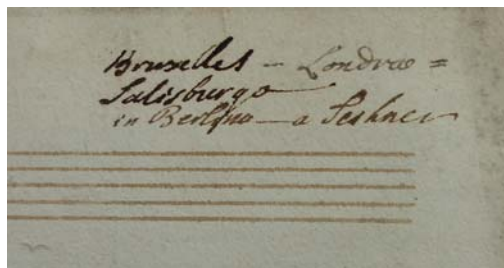 Bruxelles — Londra =
Salisburgo —
in Berlino — a